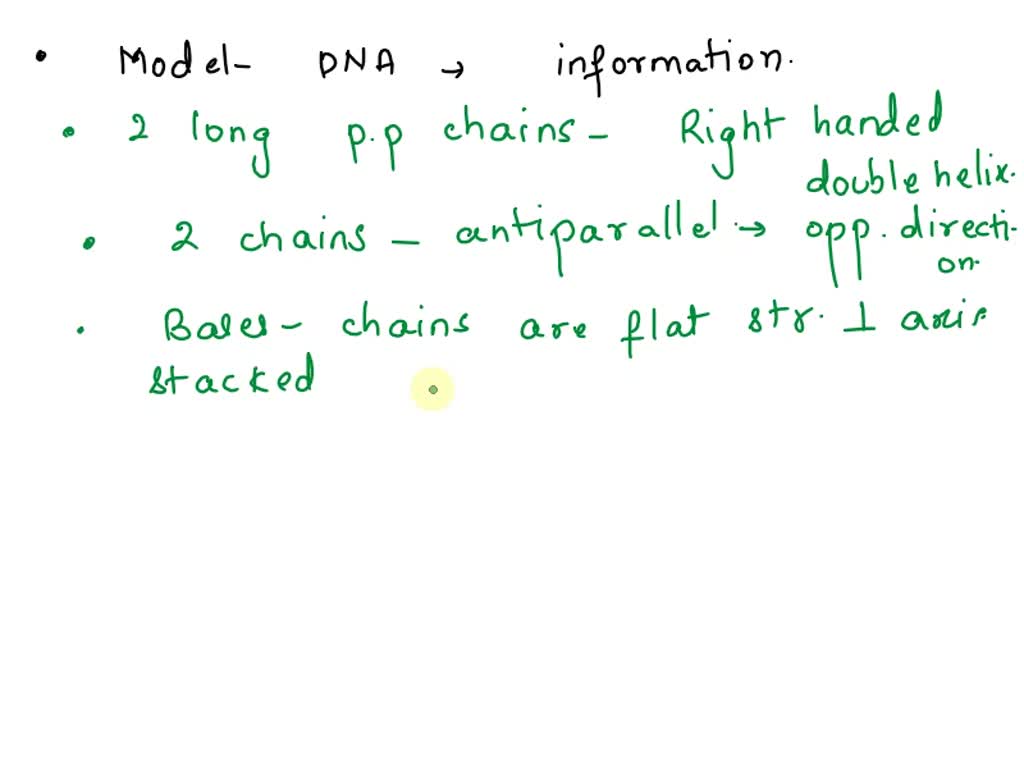 • Model- DNA → information.
• 2 long p.p chains - Right handed
double helix.
• 2 chains - antiparallel. → opp. directi-
on.
• Bases - chains are flat str. ⊥ axis
stacked